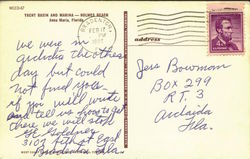 WC23-67
YACHT BASIN AND MARINA — HOLMES BEACH
Anna Maria, Florida
BRADENTON
FEB 17
PM
we were in
Arcadia the other
day but could
not find you.
if you will write
and tell us how to get
there we will stop
3107 9th St East
Bradenton Fla.
address
Jess Bowman
Box 299
RT. 3
Arcadia
Fla.